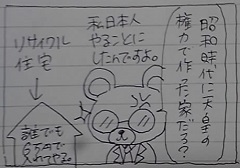 昭和時代に大皇の
権力で作った家だろ？
私日本人
やることに
したんですよ。
リサイクル
住宅
誰でも
6500で
入れてやる。